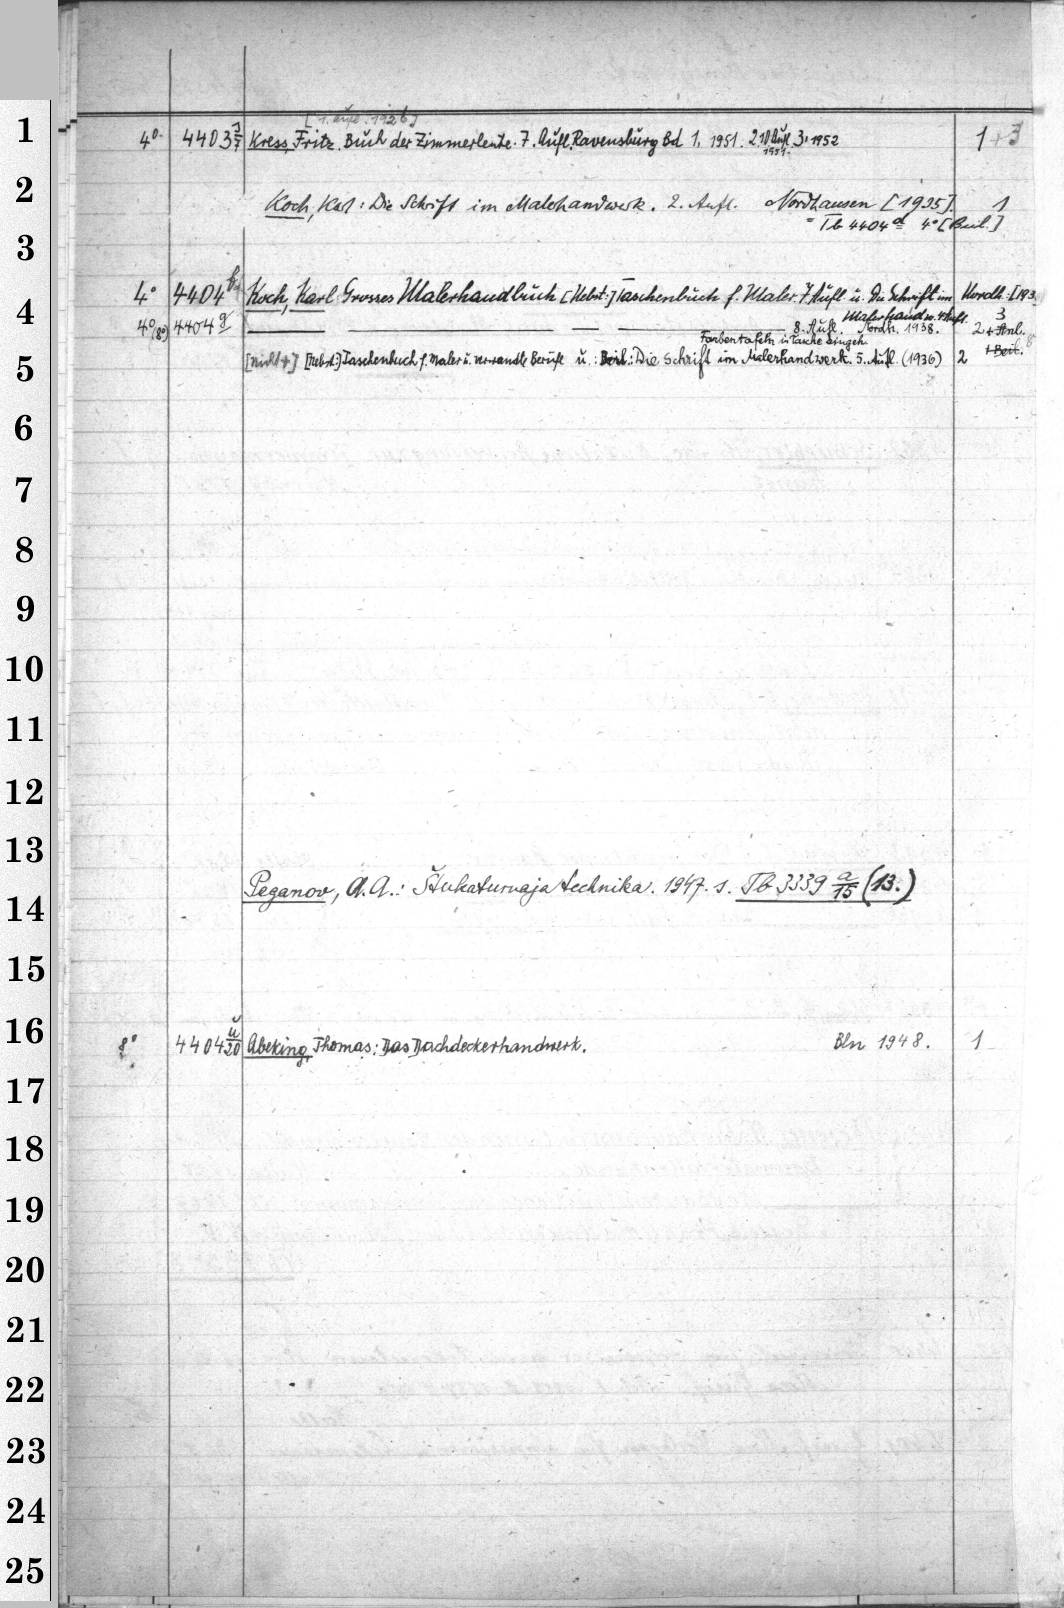 1
[1. Aufl. 1926]
4° 4403 3/7 Kress, Fritz. Buch der Zimmerleute. 7. Aufl. Ravensburg Bd 1. 1951. 2. 10 Aufl. 3. 1952 1+3
1951.
2
Koch, Karl: Die Schrift im Malehandwerk. 2. Aufl. Nordhausen [1935]. 1
= Tb 4404 d 4° [Beil.]
3
4° 4404 b Koch, Karl Grosses Malerhandbuch [Nebst:] Taschenbuch f. Maler. 7 Aufl u. Die Schrift im Nordh. [193
4
Malerhandw. 4 Aufl. 3
4°(8°) 4404 g 8. Aufl. Nordh. 1938. 2 + Anl.
Farbentafeln in Tasche eingeh. 1 Beil. 8°
5
[nicht +] [Nebst:] Taschenbuch f. Maler u. verwandte Berufe u. : Beil.: Die Schrift im Malerhandwerk. 5. Aufl. (1936) 2
6
7
8
9
10
11
12
13
Peganov, A. A.: Štukaturnaja technika. 1947. s. Tb 3339 a/15 (13.)
14
15
16
8° 4404 u/20 Abeking, Thomas: Das Dachdeckerhandwerk. Bln 1948. 1
17
18
19
20
21
22
23
24
25